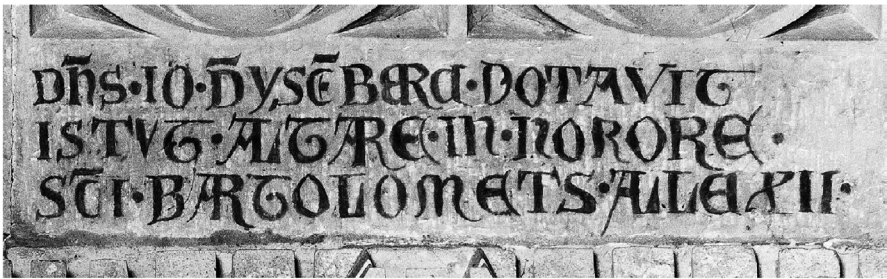 DN̄S·IO·D̄ YSĒBERG·DOTAVIT
ISTVT·ALTARE·IN·NORORE·
SC̄I·BARTOLOMETS·ALLEXII·